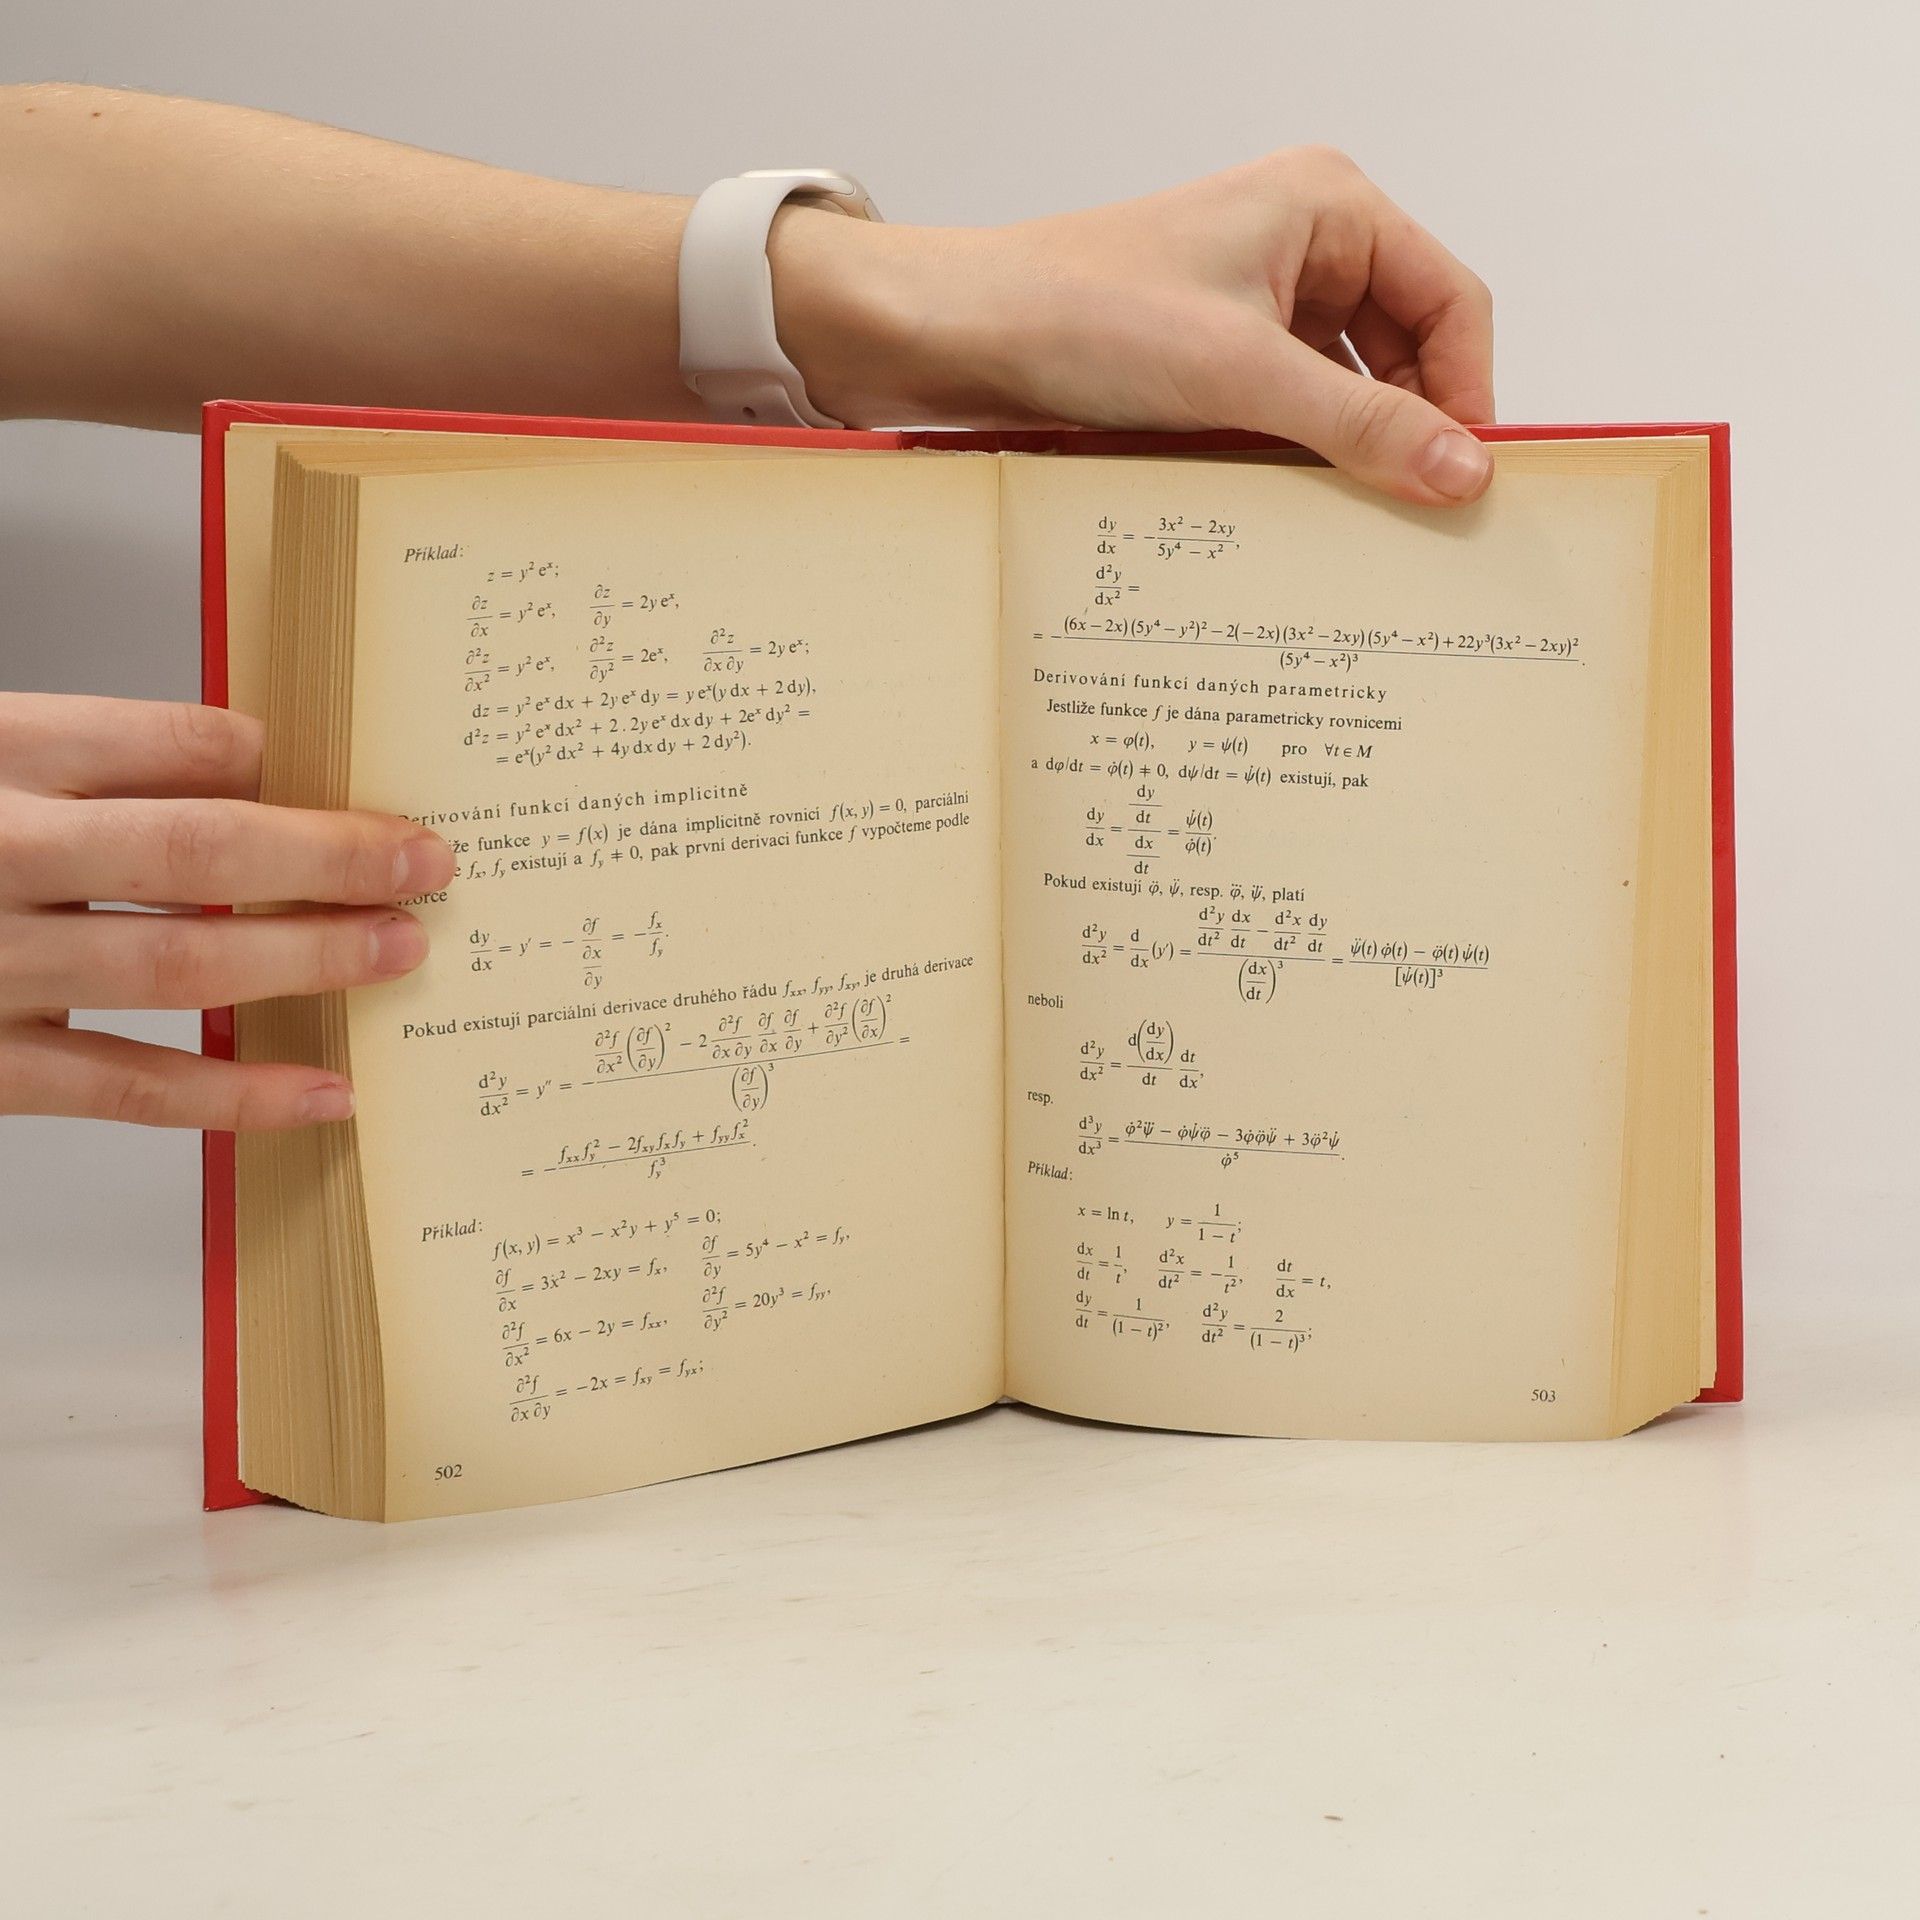 Příklad:
z = y² eˣ;
∂z/∂x = y² eˣ, ∂z/∂y = 2y eˣ,
∂²z/∂x² = y² eˣ, ∂²z/∂y² = 2eˣ, ∂²z/∂x ∂y = 2y eˣ;
dz = y² eˣ dx + 2y eˣ dy = y eˣ(y dx + 2 dy),
d²z = y² eˣ dx² + 2 . 2y eˣ dx dy + 2eˣ dy² =
= eˣ(y² dx² + 4y dx dy + 2 dy²).
Derivování funkcí daných implicitně
že funkce y = f(x) je dána implicitně rovnicí f(x, y) = 0, parciální
e fₓ, f_y existují a f_y ≠ 0, pak první derivaci funkce f vypočteme podle
vzorce
dy/dx = y′ = − (∂f/∂x)/(∂y) = − fₓ/f_y.
Pokud existují parciální derivace druhého řádu fₓₓ, f_yy, f_xy, je druhá derivace
d²y/dx² = y″ = − (∂²f/∂x² (∂f/∂y)² − 2 ∂²f/∂x ∂y ∂f/∂x ∂f/∂y + ∂²f/∂y² (∂f/∂x)²)/(∂f/∂y)³ =
= − (fₓₓ f_y² − 2f_xy fₓ f_y + f_yy fₓ²)/f_y³.
Příklad:
f(x, y) = x³ − x²y + y⁵ = 0;
∂f/∂x = 3x² − 2xy = fₓ, ∂f/∂y = 5y⁴ − x² = f_y,
∂²f/∂x² = 6x − 2y = fₓₓ, ∂²f/∂y² = 20y³ = f_yy,
∂²f/∂x ∂y = −2x = f_xy = f_yx;
502
dy/dx = − (3x² − 2xy)/(5y⁴ − x²),
d²y/dx² =
= − ((6x − 2x)(5y⁴ − y²)² − 2(−2x)(3x² − 2xy)(5y⁴ − x²) + 22y³(3x² − 2xy)²)/(5y⁴ − x²)³.
Derivování funkcí daných parametricky
Jestliže funkce f je dána parametricky rovnicemi
x = φ(t), y = ψ(t) pro ∀t ∈ M
a dφ/dt = φ̇(t) ≠ 0, dψ/dt = ψ̇(t) existují, pak
dy/dx = (dy/dt)/(dx/dt) = ψ̇(t)/φ̇(t).
Pokud existují φ̈, ψ̈, resp. φ⃛, ψ⃛, platí
d²y/dx² = d/dx (y′) = (d²y/dt² dx/dt − d²x/dt² dy/dt)/(dx/dt)³ = (ψ̈(t) φ̇(t) − φ̈(t) ψ̇(t))/[ψ̇(t)]³
neboli
d²y/dx² = d(dy/dx)/dt dt/dx,
resp.
d³y/dx³ = (φ̇²ψ⃛ − φ̇ψ̇φ⃛ − 3φ̇φ̈ψ̈ + 3φ̈²ψ̇)/φ̇⁵.
Příklad:
x = ln t, y = 1/(1 − t);
dx/dt = 1/t, d²x/dt² = − 1/t², dt/dx = t,
dy/dt = 1/(1 − t)², d²y/dt² = 2/(1 − t)³;
503